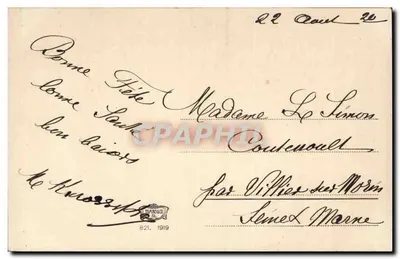 22 Aout 20
Bonne Fête
bonne Santé
bon baisers
Madame L Simon
Coutevoult
par Villiers sur Morin
Seine & Marne
821. 1919